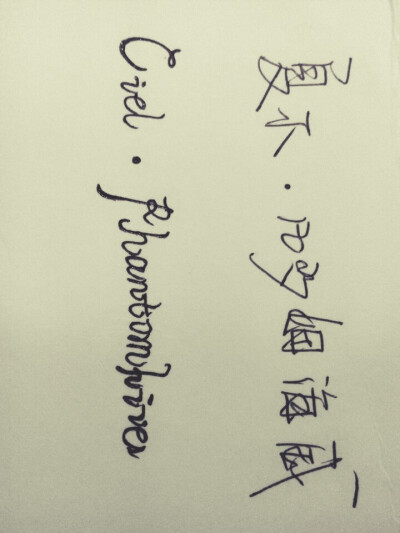 夏尔·凡多姆海威
Ciel · Phantomhive